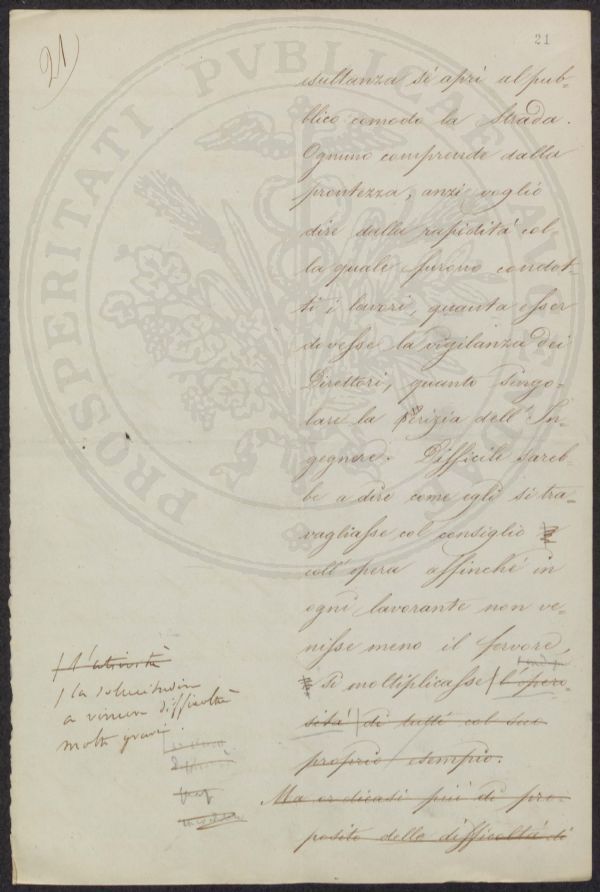 21)
21
esultanza si aprì al pub-
blico comodo la Strada.
Ognuno comprende dalla
prontezza, anzi voglio
dire dalla rapidità col-
la quale furono condot-
ti i lavori, quanta esser
dovesse la vigilanza dei
Direttori, quanto singo-
lare la Perizia dell'In-
gegnere. Difficile sareb-
be a dire come egli si tra-
vagliasse col consiglio e
coll'opera affinchè in
ogni lavorante non ve-
nisse meno il fervore,
si moltiplicasse l'opero-
sità di tutti col suo
proprio esempio.
Ma or dicasi più di pro-
posito delle difficoltà di
l'attività
la solecitudin
a vincer difficoltà
molte gravi.
PROSPERITATI PVBLICAE AVGENDAE